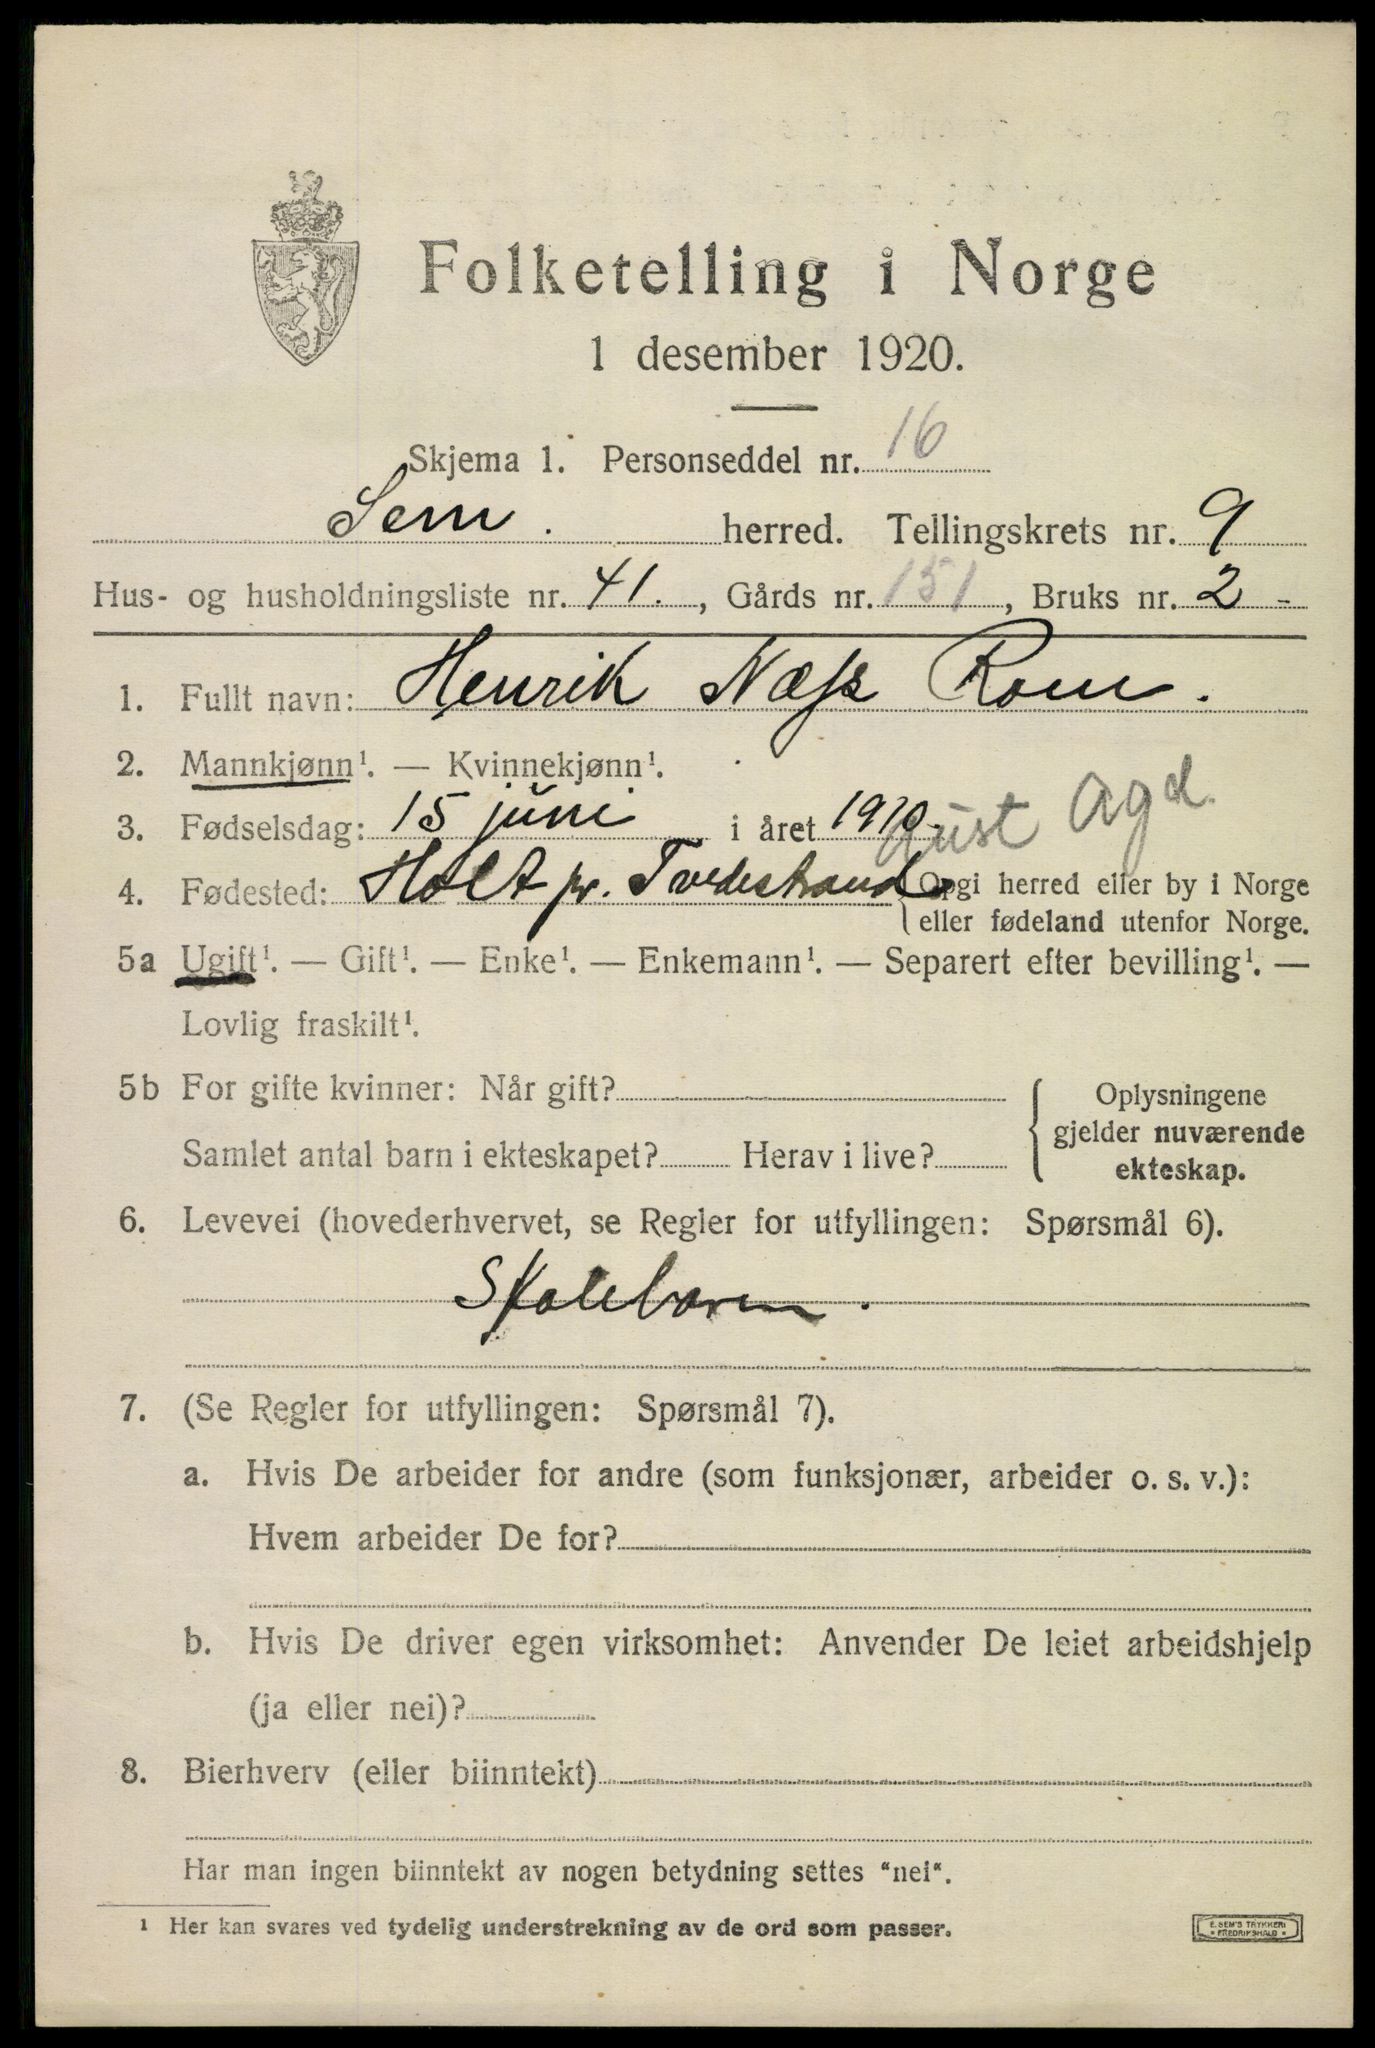 Folketelling i Norge
1 desember 1920.
Skjema 1. Personseddel nr. 16
Sem. herred. Tellingskrets nr. 9
Hus- og husholdningsliste nr. 41., Gårds nr. 151, Bruks nr. 2 -
1. Fullt navn: Henrik Næss Rom.
2. Mannkjønn¹. — Kvinnekjønn¹.
3. Fødselsdag: 15 juni i året 1910. Aust Agd.
4. Fødested: Holt pr. Tvedestrand { Opgi herred eller by i Norge
eller fødeland utenfor Norge.
5a Ugift¹. — Gift¹. — Enke¹. — Enkemann¹. — Separert efter bevilling¹. —
Lovlig fraskilt¹.
5b For gifte kvinner: Når gift? { Oplysningene
gjelder nuværende
Samlet antal barn i ekteskapet? Herav i live? ekteskap.
6. Levevei (hovederhvervet, se Regler for utfyllingen: Spørsmål 6).
Skolebarn.
7. (Se Regler for utfyllingen: Spørsmål 7).
a. Hvis De arbeider for andre (som funksjonær, arbeider o. s. v.):
Hvem arbeider De for?
b. Hvis De driver egen virksomhet: Anvender De leiet arbeidshjelp
(ja eller nei)?
8. Bierhverv (eller biinntekt)
Har man ingen biinntekt av nogen betydning settes "nei".
¹ Her kan svares ved tydelig understrekning av de ord som passer.
E. SEM'S TRYKKERI
* FREDRIKSHALD *